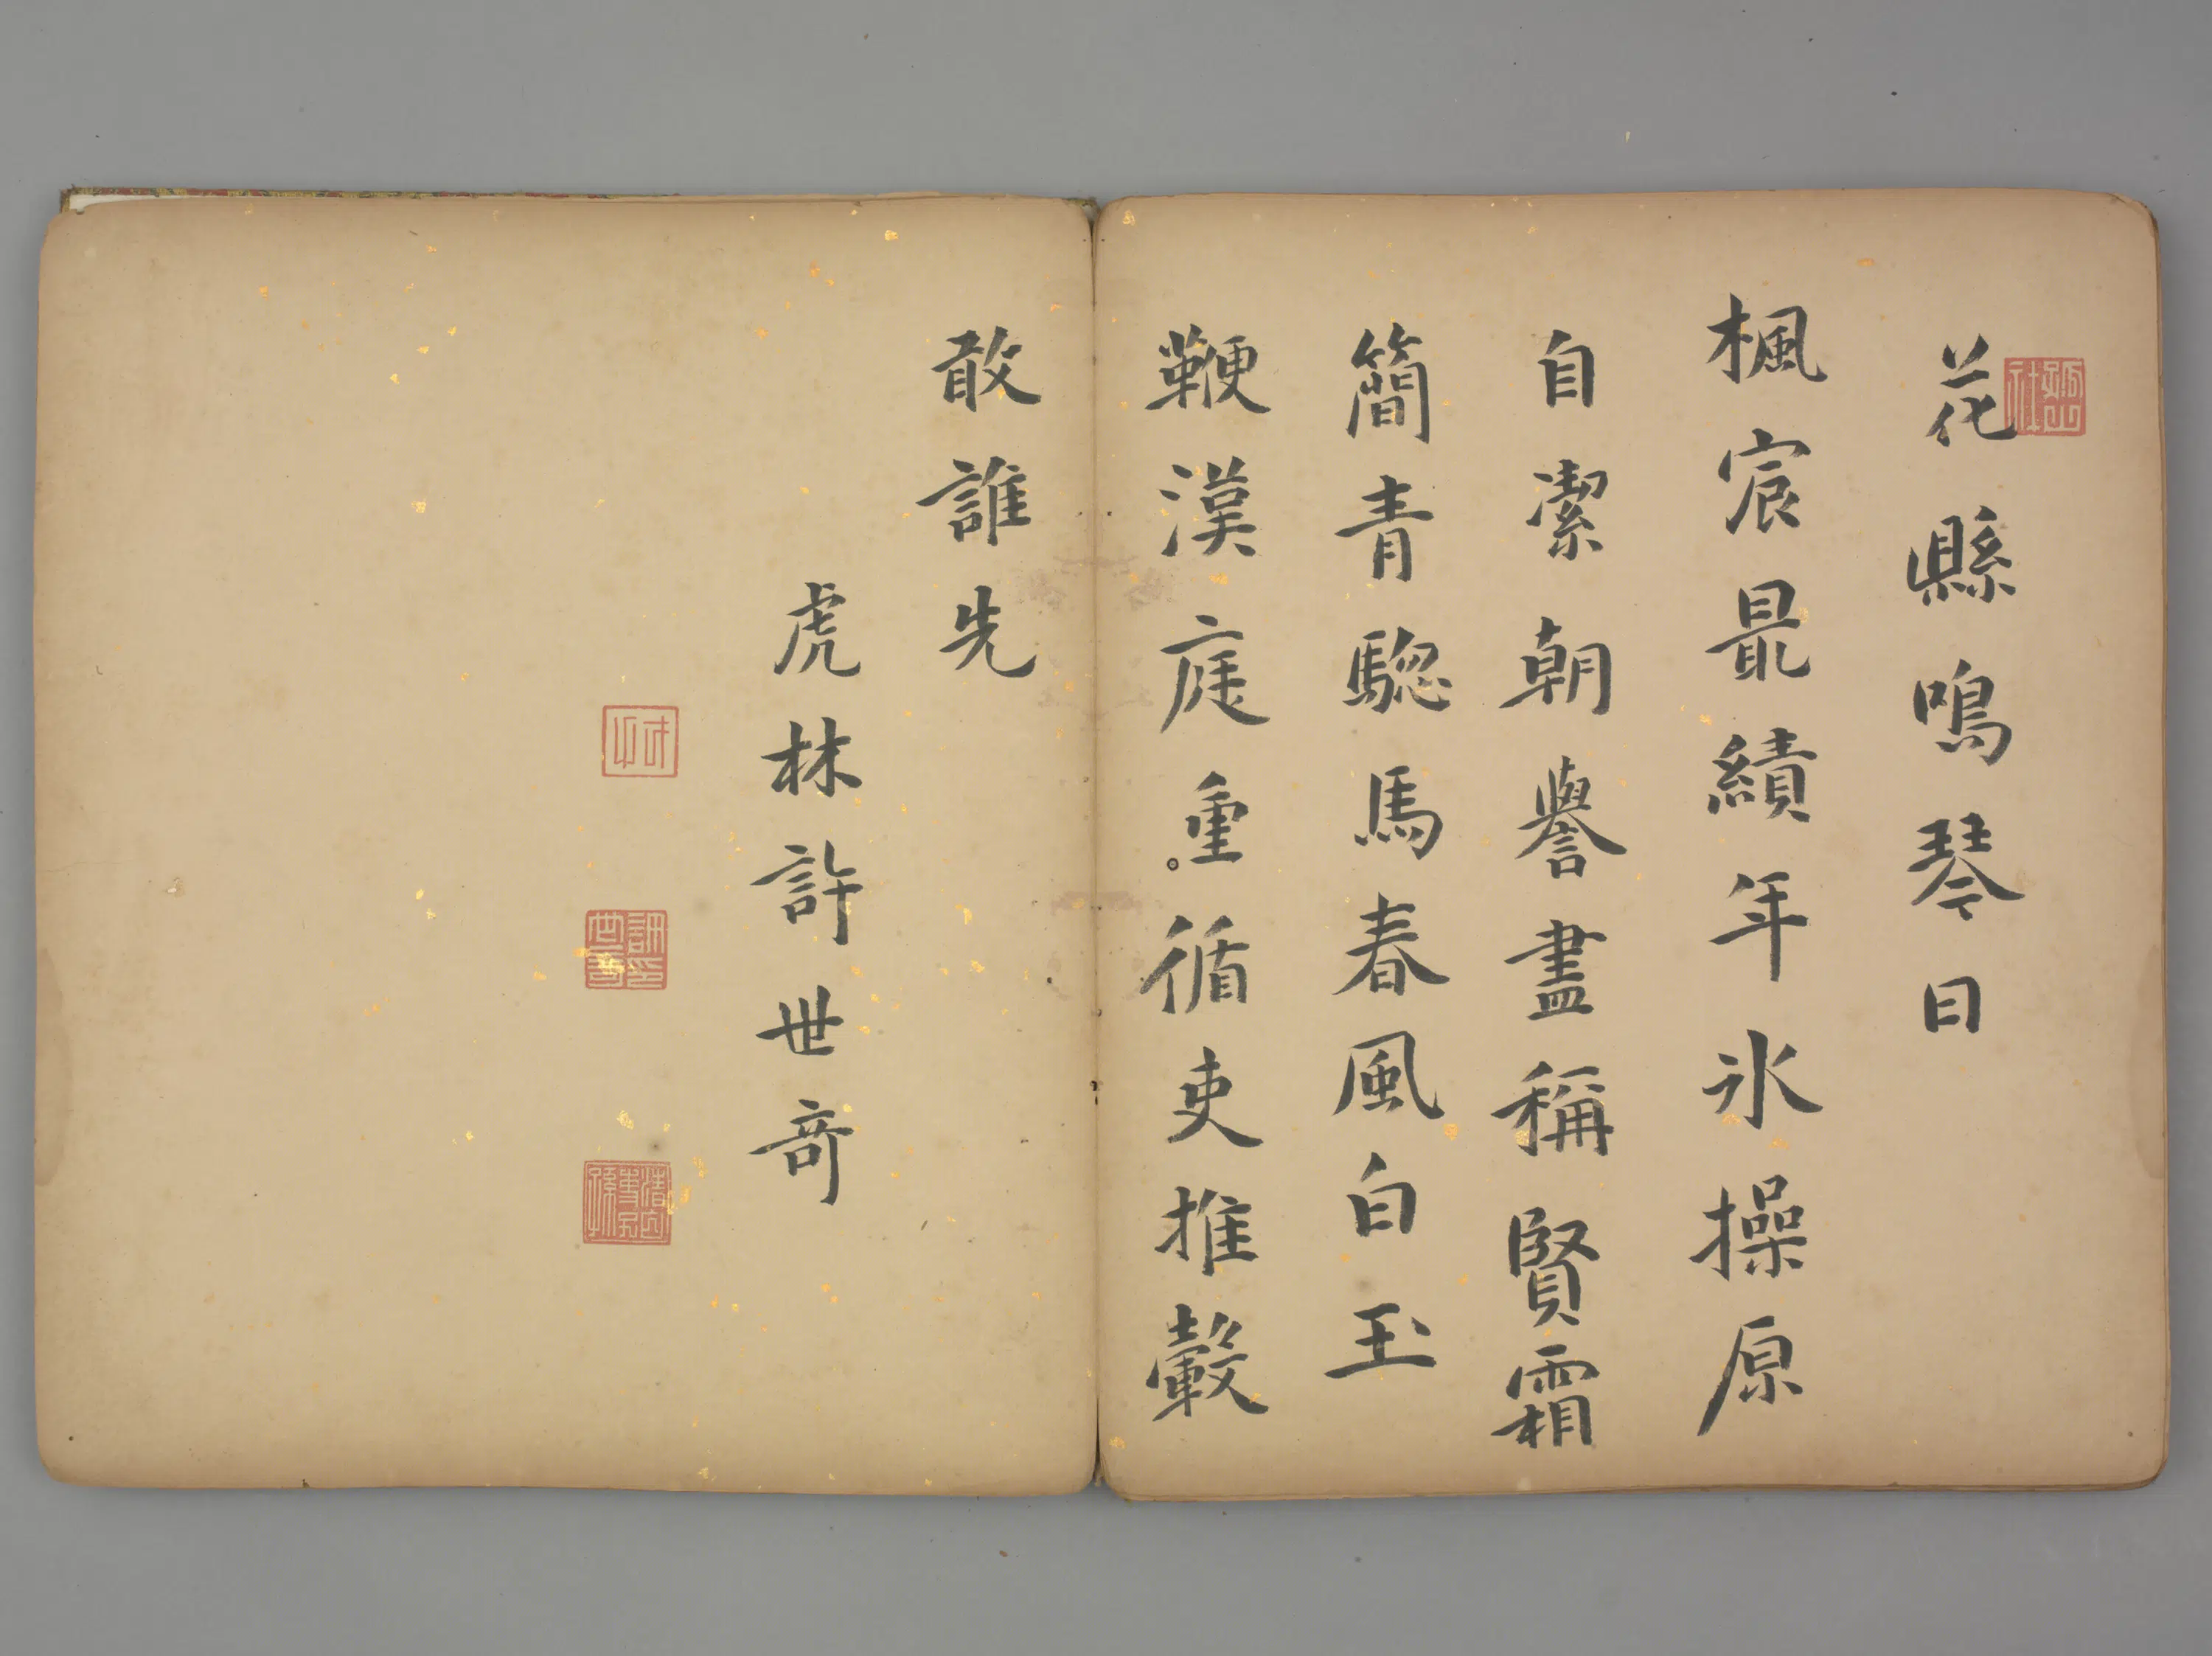 花縣鳴琴日
楓宸最績年氷操原
自潔朝譽盡稱賢霜
簡青驄馬春風白玉
鞭漢庭重循吏推轂
敢誰先
虎林許世奇